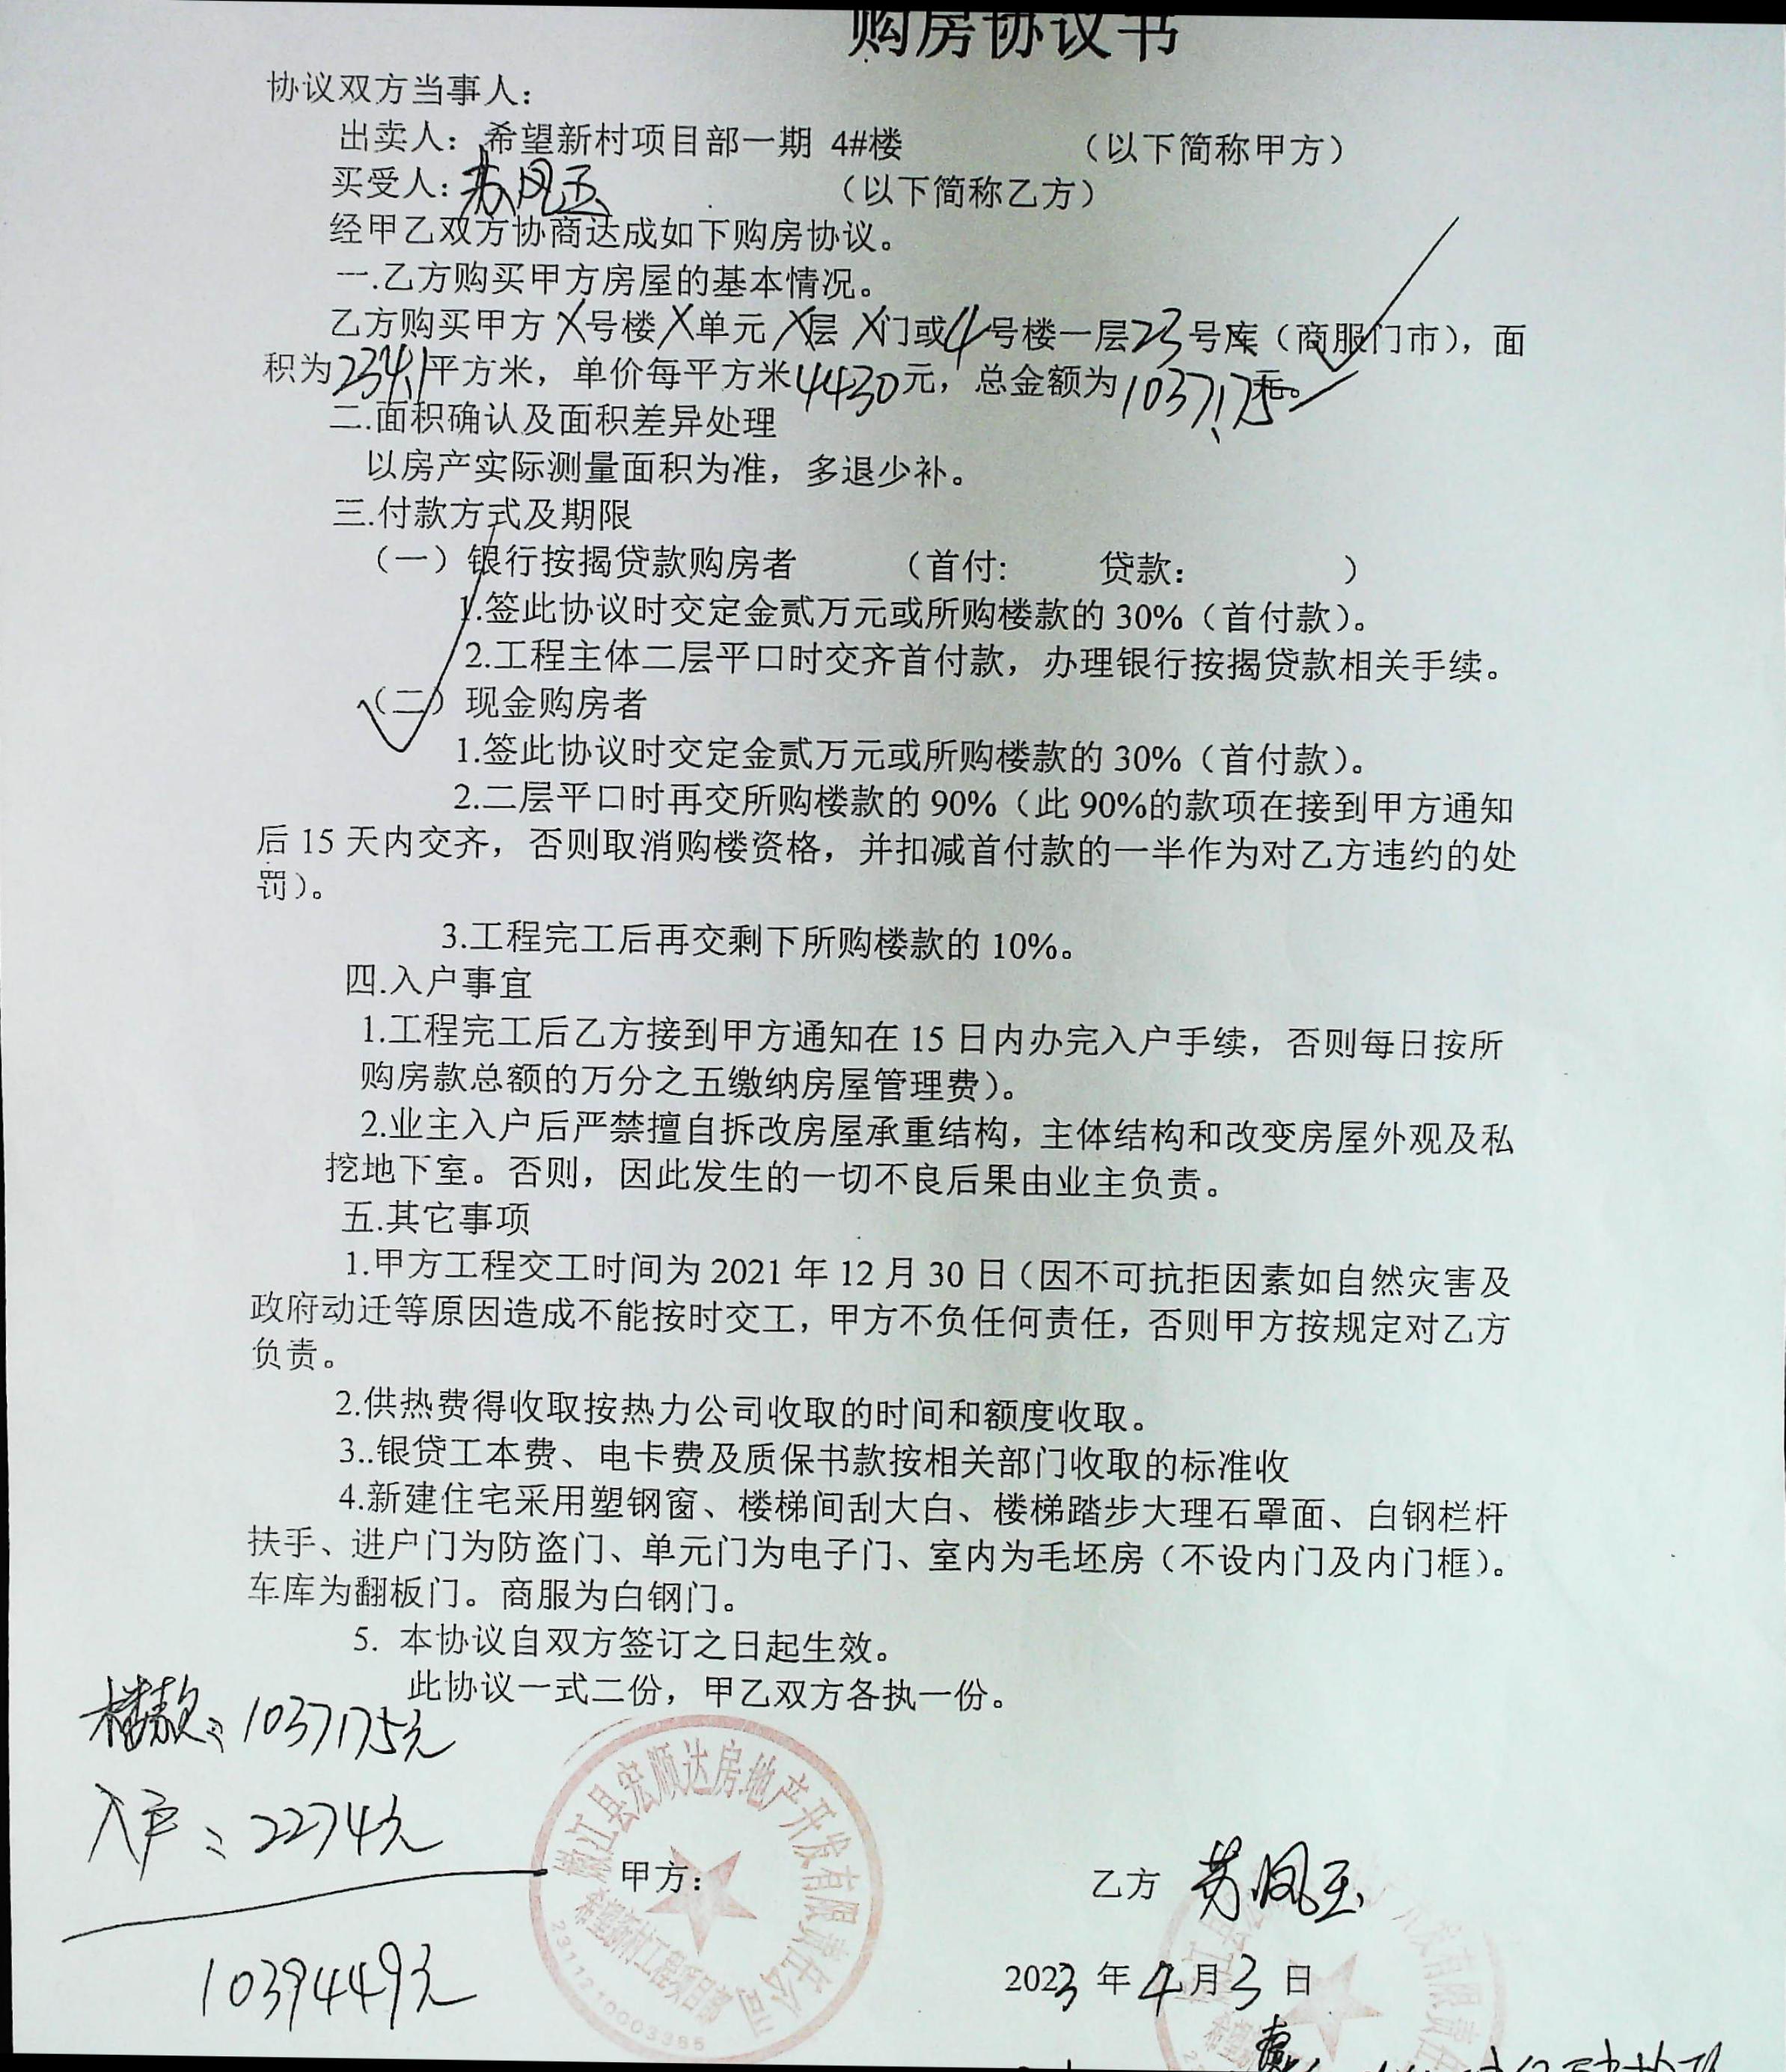 购房协议书
协议双方当事人：
出卖人：希望新村项目部一期 4#楼 （以下简称甲方）
买受人：苏凤玉 （以下简称乙方）
经甲乙双方协商达成如下购房协议。
一.乙方购买甲方房屋的基本情况。
乙方购买甲方 X号楼X单元X层X门或4号楼一层23号库（商服门市），面
积为234.1平方米，单价每平方米4430元，总金额为1037175元。
二.面积确认及面积差异处理
以房产实际测量面积为准，多退少补。
三.付款方式及期限
（一）银行按揭贷款购房者 （首付: 贷款： ）
1.签此协议时交定金贰万元或所购楼款的 30%（首付款）。
2.工程主体二层平口时交齐首付款，办理银行按揭贷款相关手续。
（二）现金购房者
1.签此协议时交定金贰万元或所购楼款的 30%（首付款）。
2.二层平口时再交所购楼款的 90%（此 90%的款项在接到甲方通知
后 15 天内交齐，否则取消购楼资格，并扣减首付款的一半作为对乙方违约的处
罚）。
3.工程完工后再交剩下所购楼款的 10%。
四.入户事宜
1.工程完工后乙方接到甲方通知在 15 日内办完入户手续，否则每日按所
购房款总额的万分之五缴纳房屋管理费）。
2.业主入户后严禁擅自拆改房屋承重结构，主体结构和改变房屋外观及私
挖地下室。否则，因此发生的一切不良后果由业主负责。
五.其它事项
1.甲方工程交工时间为 2021 年 12 月 30 日（因不可抗拒因素如自然灾害及
政府动迁等原因造成不能按时交工，甲方不负任何责任，否则甲方按规定对乙方
负责。
2.供热费得收取按热力公司收取的时间和额度收取。
3..银贷工本费、电卡费及质保书款按相关部门收取的标准收
4.新建住宅采用塑钢窗、楼梯间刮大白、楼梯踏步大理石罩面、白钢栏杆
扶手、进户门为防盗门、单元门为电子门、室内为毛坯房（不设内门及内门框）。
车库为翻板门。商服为白钢门。
5. 本协议自双方签订之日起生效。
此协议一式二份，甲乙双方各执一份。
楼款：1037175元
入户：2274元
1039449元
嫩江县宏顺达房地产开发有限责任公司
希望新村工程项目部
2311210003385
甲方：
乙方 苏凤玉
2023 年 4 月 3 日